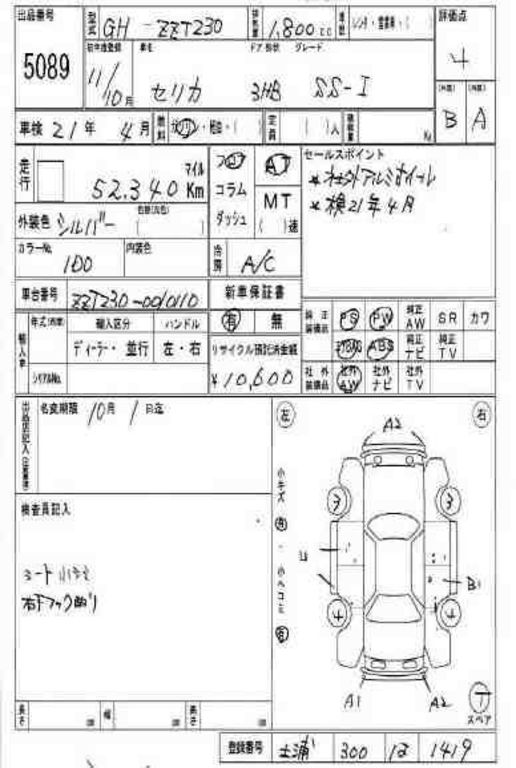 出品番号 5089
型式 GH-ZZT230 排気量 1,800cc 評価点 4
初年度登録 11/10月 車名 セリカ ドア形状 3HB グレード SS-I
B A
車検 21年 4月 燃料 ガソリン・軽油・( ) 定員 ( )人 Kg
走行 マイル 52,340 Km
フロア コラム ダッシュ
AT MT ( )速
セールスポイント
*社外アルミホイール
*検21年4月
外装色 シルバー
カラーNo. 100 内装色
冷房 A/C
車台番号 ZZT230-0010110
新車保証書 有 無
輸入車 年式 輸入区分 ハンドル
ディーラー・並行 左・右
リサイクル預託済金額
¥10,600
純正装備品 PS PW 純正AW SR カワ
ABS 純正ナビ 純正TV
社外装備品 社外AW 社外ナビ 社外TV
名変期限 10月1日迄
検査員記入
左 右
A2
小キズ 有・小ヘコミ 有
3 3
U
B1
4 4
A1 A2
スペア
長さ 幅 高さ
登録番号 土浦 300 1419